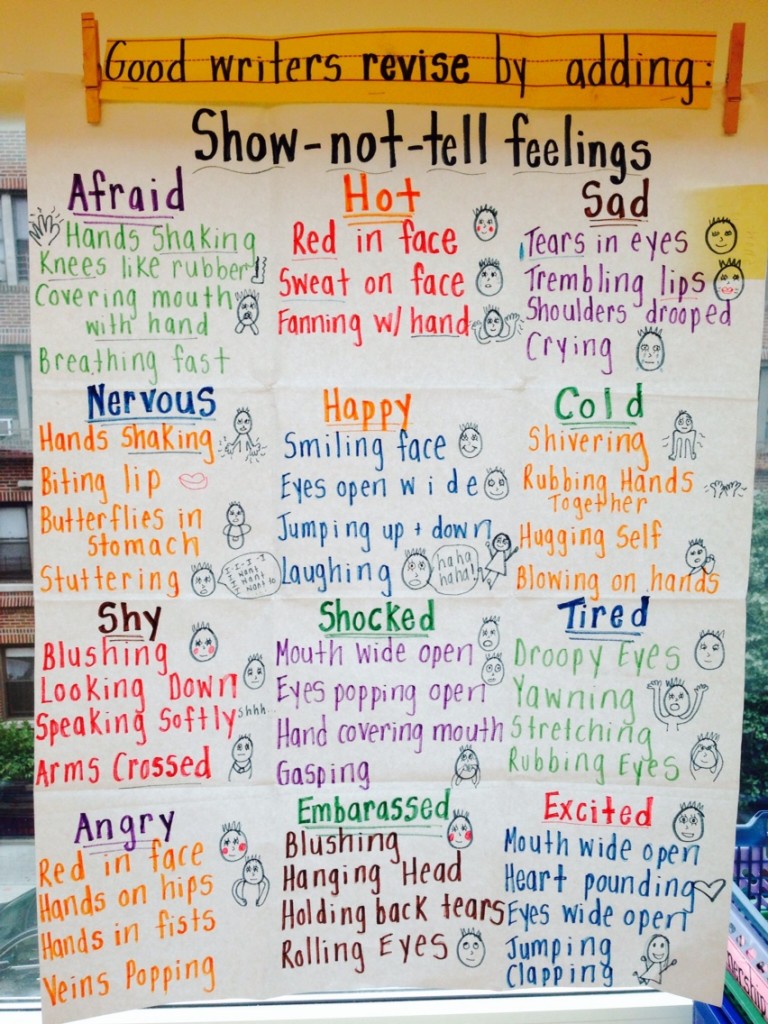 Good writers revise by adding:
Show-not-tell feelings
Afraid
Hands Shaking
Knees like rubber
Covering mouth
with hand
Breathing fast
Hot
Red in face
Sweat on face
Fanning w/ hand
Sad
Tears in eyes
Trembling lips
Shoulders drooped
Crying
Nervous
Hands Shaking
Biting lip
Butterflies in
Stomach
Stuttering
I-I-I-I
want
want
I want to
Happy
Smiling face
Eyes open wide
Jumping up + down
Laughing
haha
haha!
Cold
Shivering
Rubbing Hands
Together
Hugging Self
Blowing on hands
Shy
Blushing
Looking Down
Speaking Softly
shhh...
Arms Crossed
Shocked
Mouth wide open
Eyes popping open
Hand covering mouth
Gasping
Tired
Droopy Eyes
Yawning
Stretching
Rubbing Eyes
Angry
Red in face
Hands on hips
Hands in fists
Veins Popping
Embarassed
Blushing
Hanging Head
Holding back tears
Rolling Eyes
Excited
Mouth wide open
Heart pounding
Eyes wide open
Jumping
Clapping